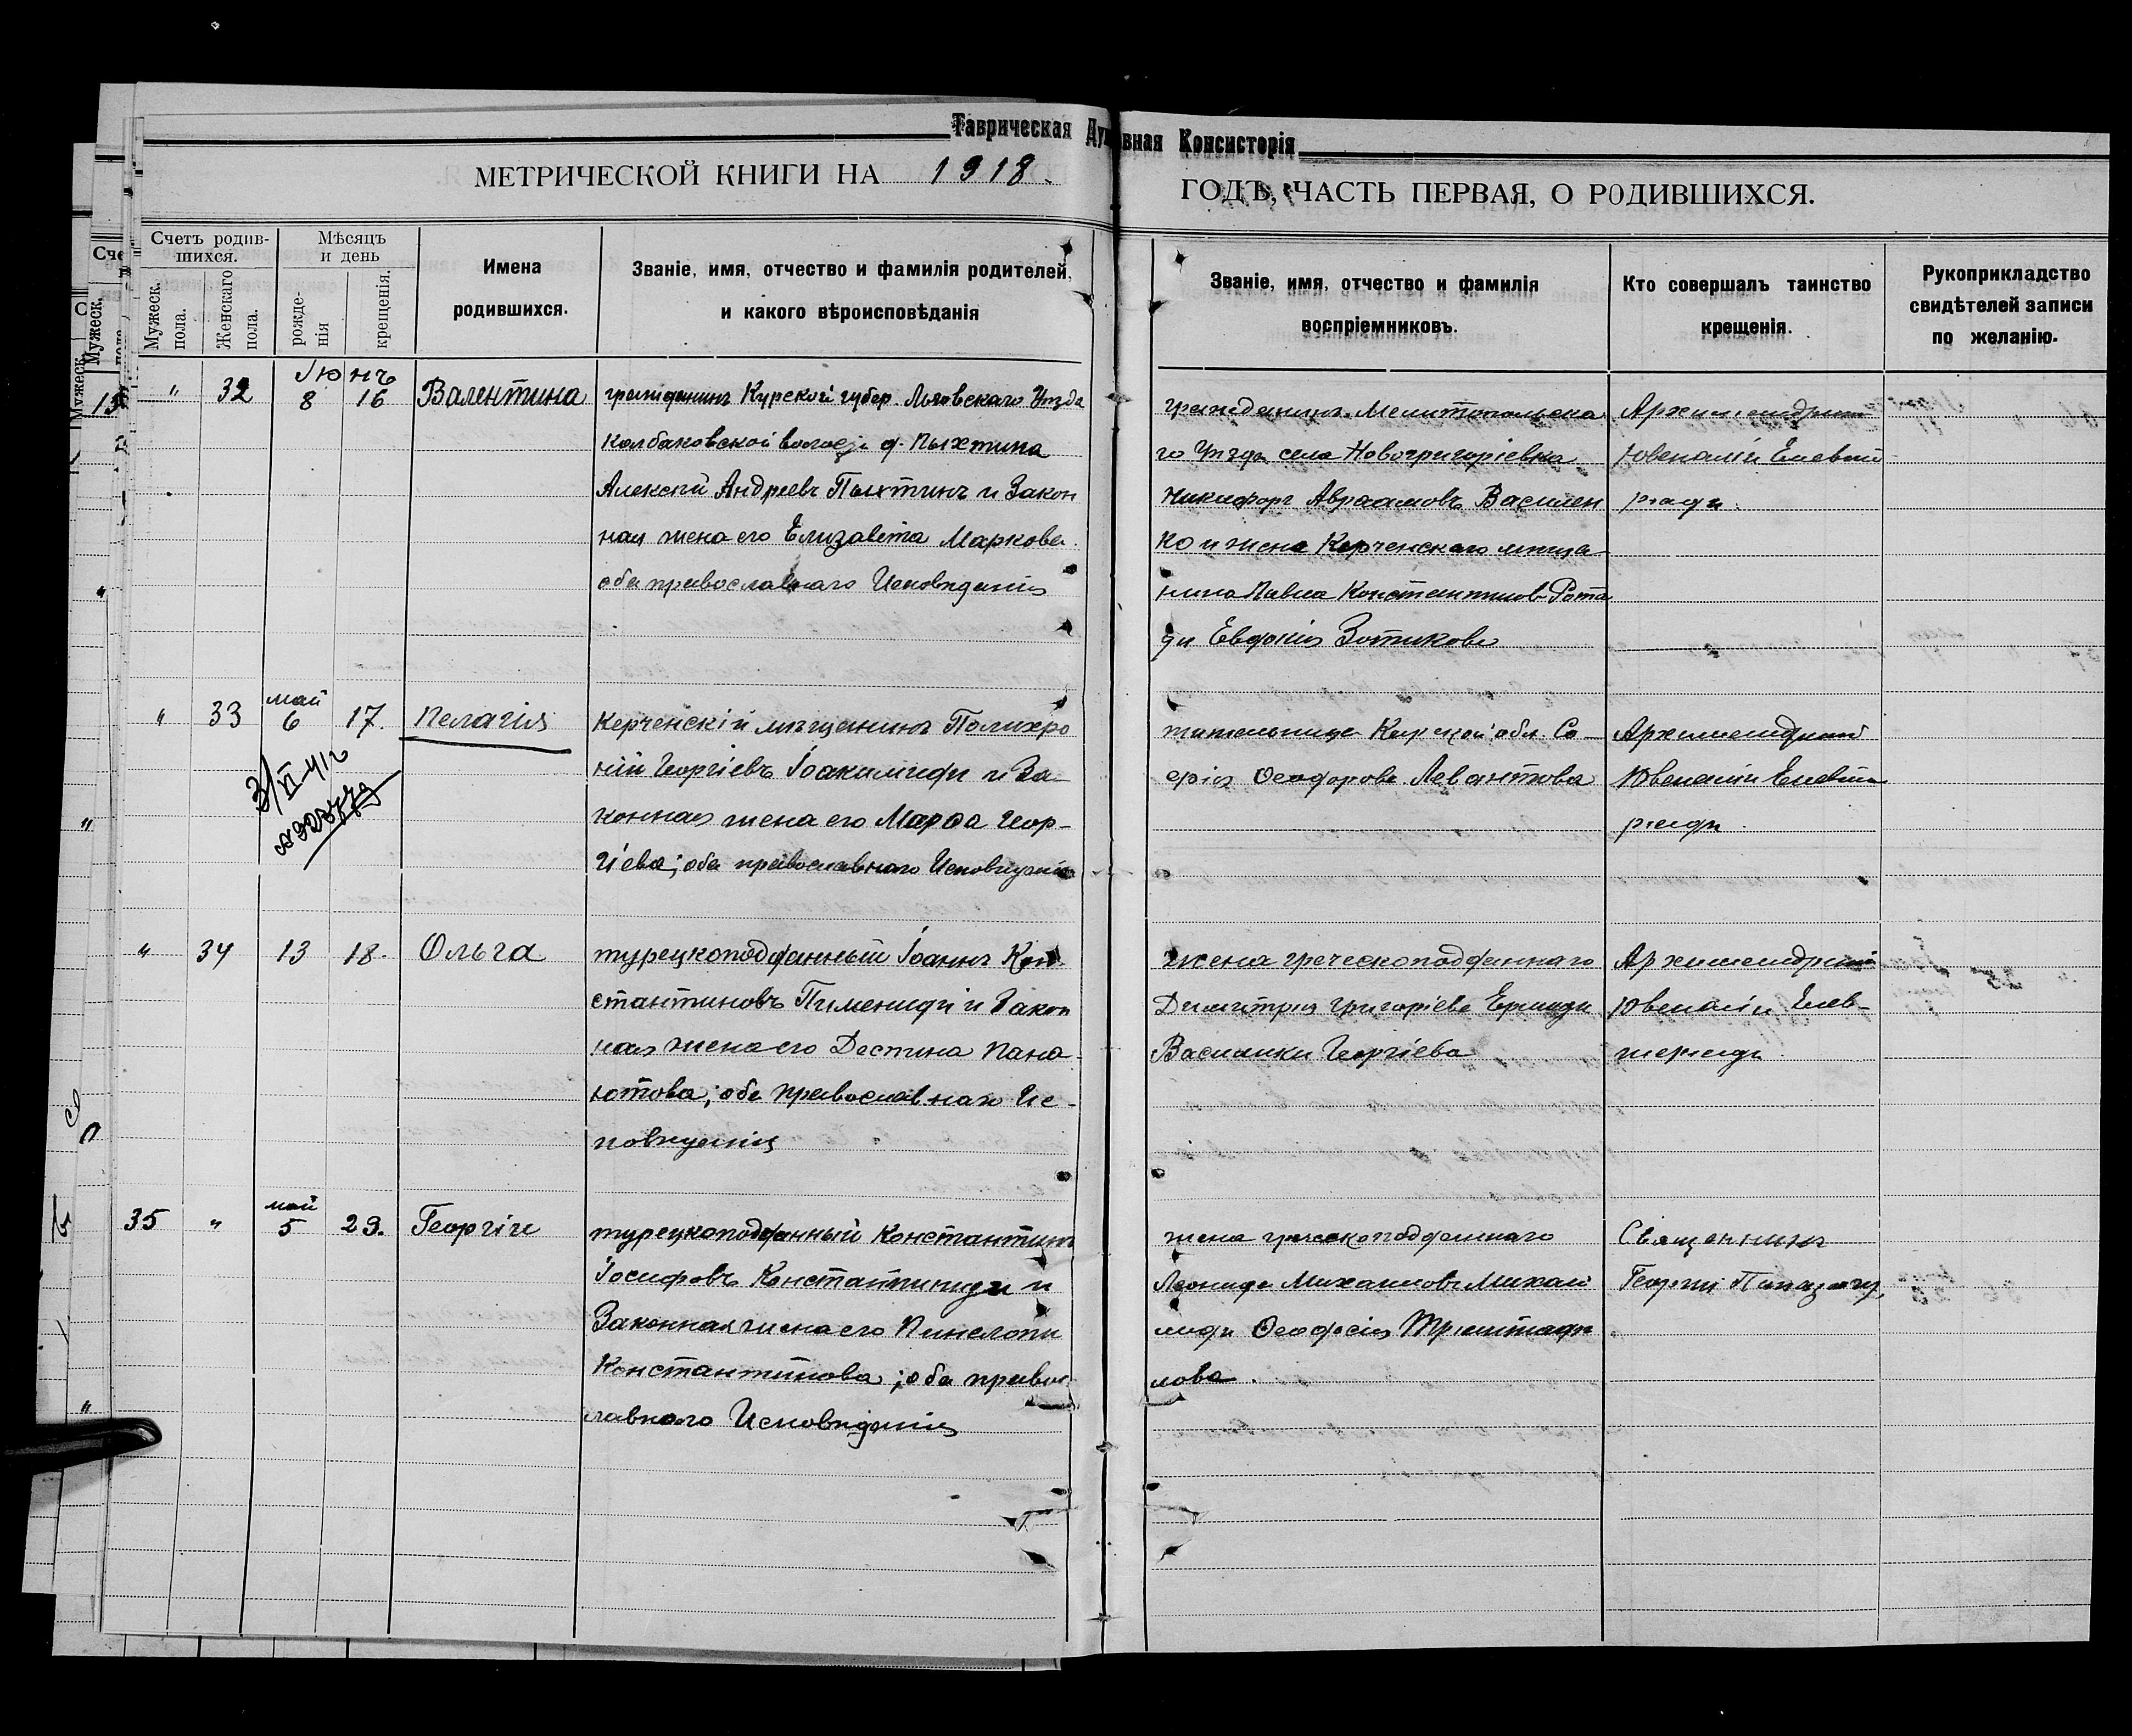 Таврическая Духовная Консисторія
МЕТРИЧЕСКОЙ КНИГИ НА 1918
ГОДЪ, ЧАСТЬ ПЕРВАЯ, О РОДИВШИХСЯ.
Счетъ родив-
шихся.
Мужеск. пола.
Женскаго пола.
Мѣсяцъ
и день
рожде-
нія
крещенія.
Имена
родившихся.
Званіе, имя, отчество и фамилія родителей,
и какого вѣроисповѣданія
Званіе, имя, отчество и фамилія
воспріемниковъ.
Кто совершалъ таинство
крещенія.
Рукоприкладство
свидѣтелей записи
по желанію.
Июнь
" 32 8 16 Валентина
гражданинъ Курской губер. Льговскаго Уѣзда
Колбаковской волости д. Пыхтина
Алексѣй Андреевъ Пыхтинъ и Закон
ная жена его Елизавета Маркова
оба православнаго Исповѣданія
гражданинъ Мелитопольска
го Уѣзда села Новогригоріевка
Никифоръ Авраамовъ Василен
ко и жена Керченскаго мѣща
нина Павла Константинова Рота
ди Евдокія Зотикова
Архимандритъ
Ювеналій Елевтѣ
ріади.
май
" 33 6 17. Пелагія
3/VI-41г
Керченскій мѣщанинъ Полихро
ній Георгіевъ Іоакимиди и За-
конная жена его Марѳа Геор-
гіева; оба православнаго Исповѣданія
жительница Карской обл. Со-
фія Ѳеодорова Левантова
Архимандритъ
Ювеналій Елевтѣ
ріади.
" 34 13 18. Ольга
турецкоподданный Іоаннъ Кон-
стантиновъ Пимениди и Закон
ная жена его Деспина Пана-
іотова; оба православнаго Ис-
повѣданія
жена греческоподданнаго
Димитрія Григоріева
Василики Георгіева
Архимандритъ
Ювеналій Елев-
теріади.
май
35 " 5 29. Георгій
турецкоподданный Константинъ
Іосифовъ Константиниди и
Законная жена его Пинелопи
Константинова; оба правос
лавнаго Исповѣданія
жена греческоподданнаго
Леонида Михаилова Михаи
лиди Ѳеодосія Тріантафи
лова.
Священникъ
Георгій